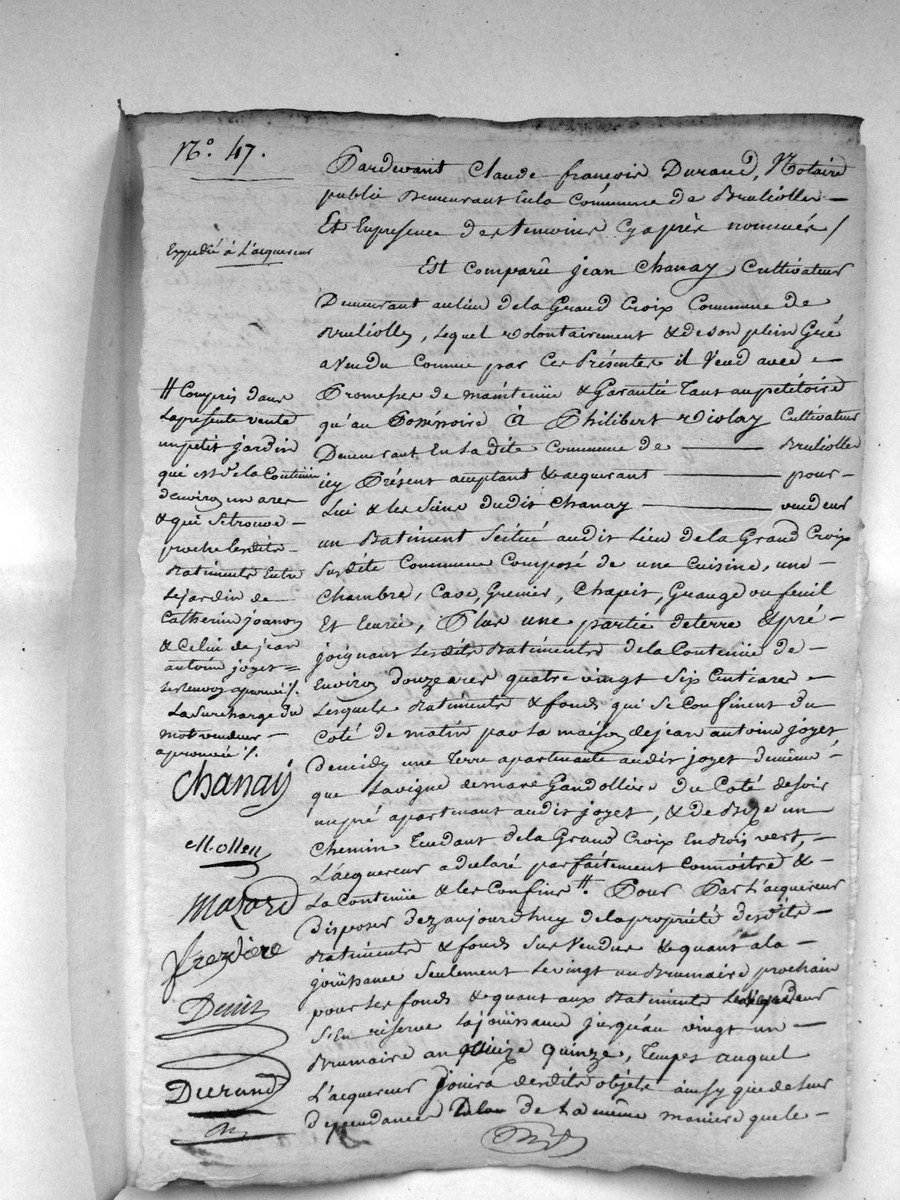 N.º 47.
Expedié à L'acquereur
Pardevant Claude françois Durand, Notaire
public Demeurant En la Commune de Brulliolles —
Et En presence des temoins Cy après nommés /
Est Comparû jean Chanay, Cultivateur
Demeurant au lieu de la Grand Croix Commune de
Brulliolles, Lequel volontairement & de son plein Gré
a Vendu Comme par Ces Présentes il Vend avec —
Promesse de maintenüe & Garantie Tant au pétitoire
qu'au Posséssoire à Philibert Violay Cultivateur
Demeurant En La dite Commune de ——— Brulliolles
icy Présent acceptant & acquerant ——— pour -
Lui & les Siens dudit Chanay ——— vendeur
un Batiment Scitué audit Lieu de la Grand Croix
Susdite Commune Composé de une Cuisine, une -
Chambre, Cave, Grenier, Chapit, Grange ou feuil
Et Ecurie, Plus une partie de terre & pré -
joignant Lesdits Batiments de la Contenüe de -
Environ douze ares quatre vingt Six Centiares -
Lesquels Batiments & fonds qui Se Confinent du
Côté de matin par La maison de jean antoine joyet
de midy une Terre apartenante audit joyet de même
que La vigne de marie Gandollière du Coté de soir
un pré apartenant audit joyet, & de Bize un
Chemin Tendant de la Grand Croix En Bois vert, —
L'acquereur a déclaré parfaitement Connoitre & -
La Contenüe & les Confins #. Pour Par L'acquereur
disposer dez aujourd'huy de la propriété desdits —
Batiments & fonds Sus Vendus & quant a la
joüissance Seulement Le vingt un Brumaire prochain
pour Les fonds & quant aux Batiments Le vendeur
S'En réserve La joüissance jusqu'au vingt un -
Brumaire an quinze, Temps auquel
L'acquereur jouira desdits objets ainsy que de Leur
dependances de La même maniere que le —
# Compris dans
La présente vente
un petit jardin
qui est de la Contenüe
d'environ un are
& qui Se trouve -
proche lesdits -
Batiments Entre
Le jardin de
Catherine joanon
& Celui de jean
antoine joyet =
Le Renvoy aprouvé /.
La Surcharge du
mot vendeur -
aprouvée /.
Chanay
Mollen
Mazard
Frezdiere
Denis
Durand